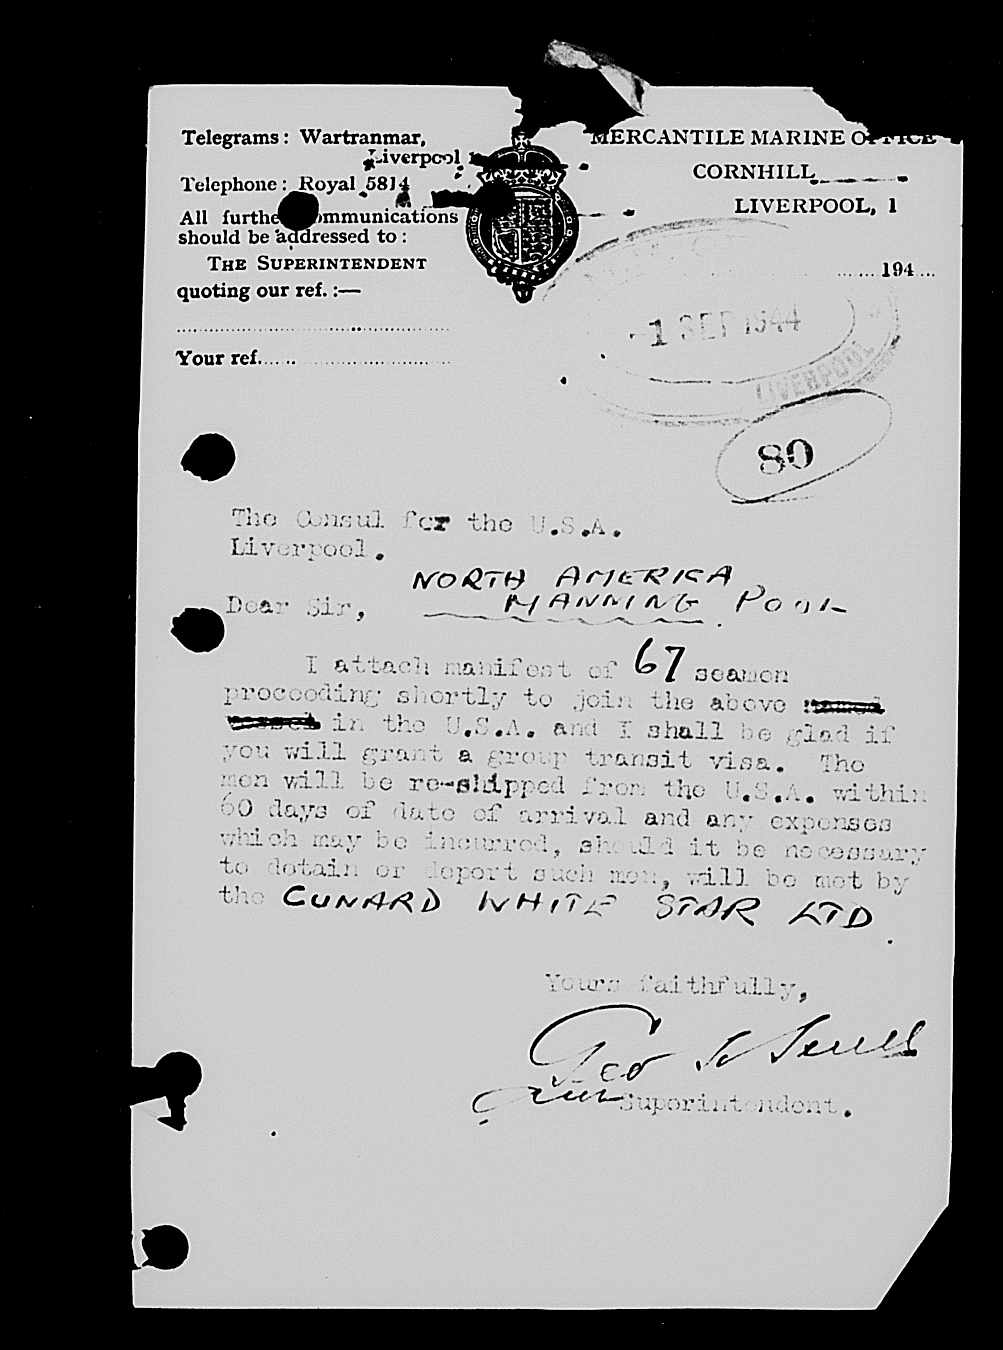 Telegrams: Wartranmar,
Liverpool 1
Telephone: Royal 5814
All further communications
should be addressed to:
THE SUPERINTENDENT
quoting our ref.:—
Your ref.
MERCANTILE MARINE OFFICE
CORNHILL,
LIVERPOOL, 1
194
-1 SEP 1944
LIVERPOOL
80
The Consul for the U.S.A.
Liverpool.
NORTH AMERICA
Dear Sir, MANNING POOL.
I attach manifest of 67 seamen
proceeding shortly to join the above named
vessel in the U.S.A. and I shall be glad if
you will grant a group transit visa. The
men will be re-shipped from the U.S.A. within
60 days of date of arrival and any expenses
which may be incurred, should it be necessary
to detain or deport such men, will be met by
the CUNARD WHITE STAR LTD.
Yours faithfully,
Geo
Superintendent.